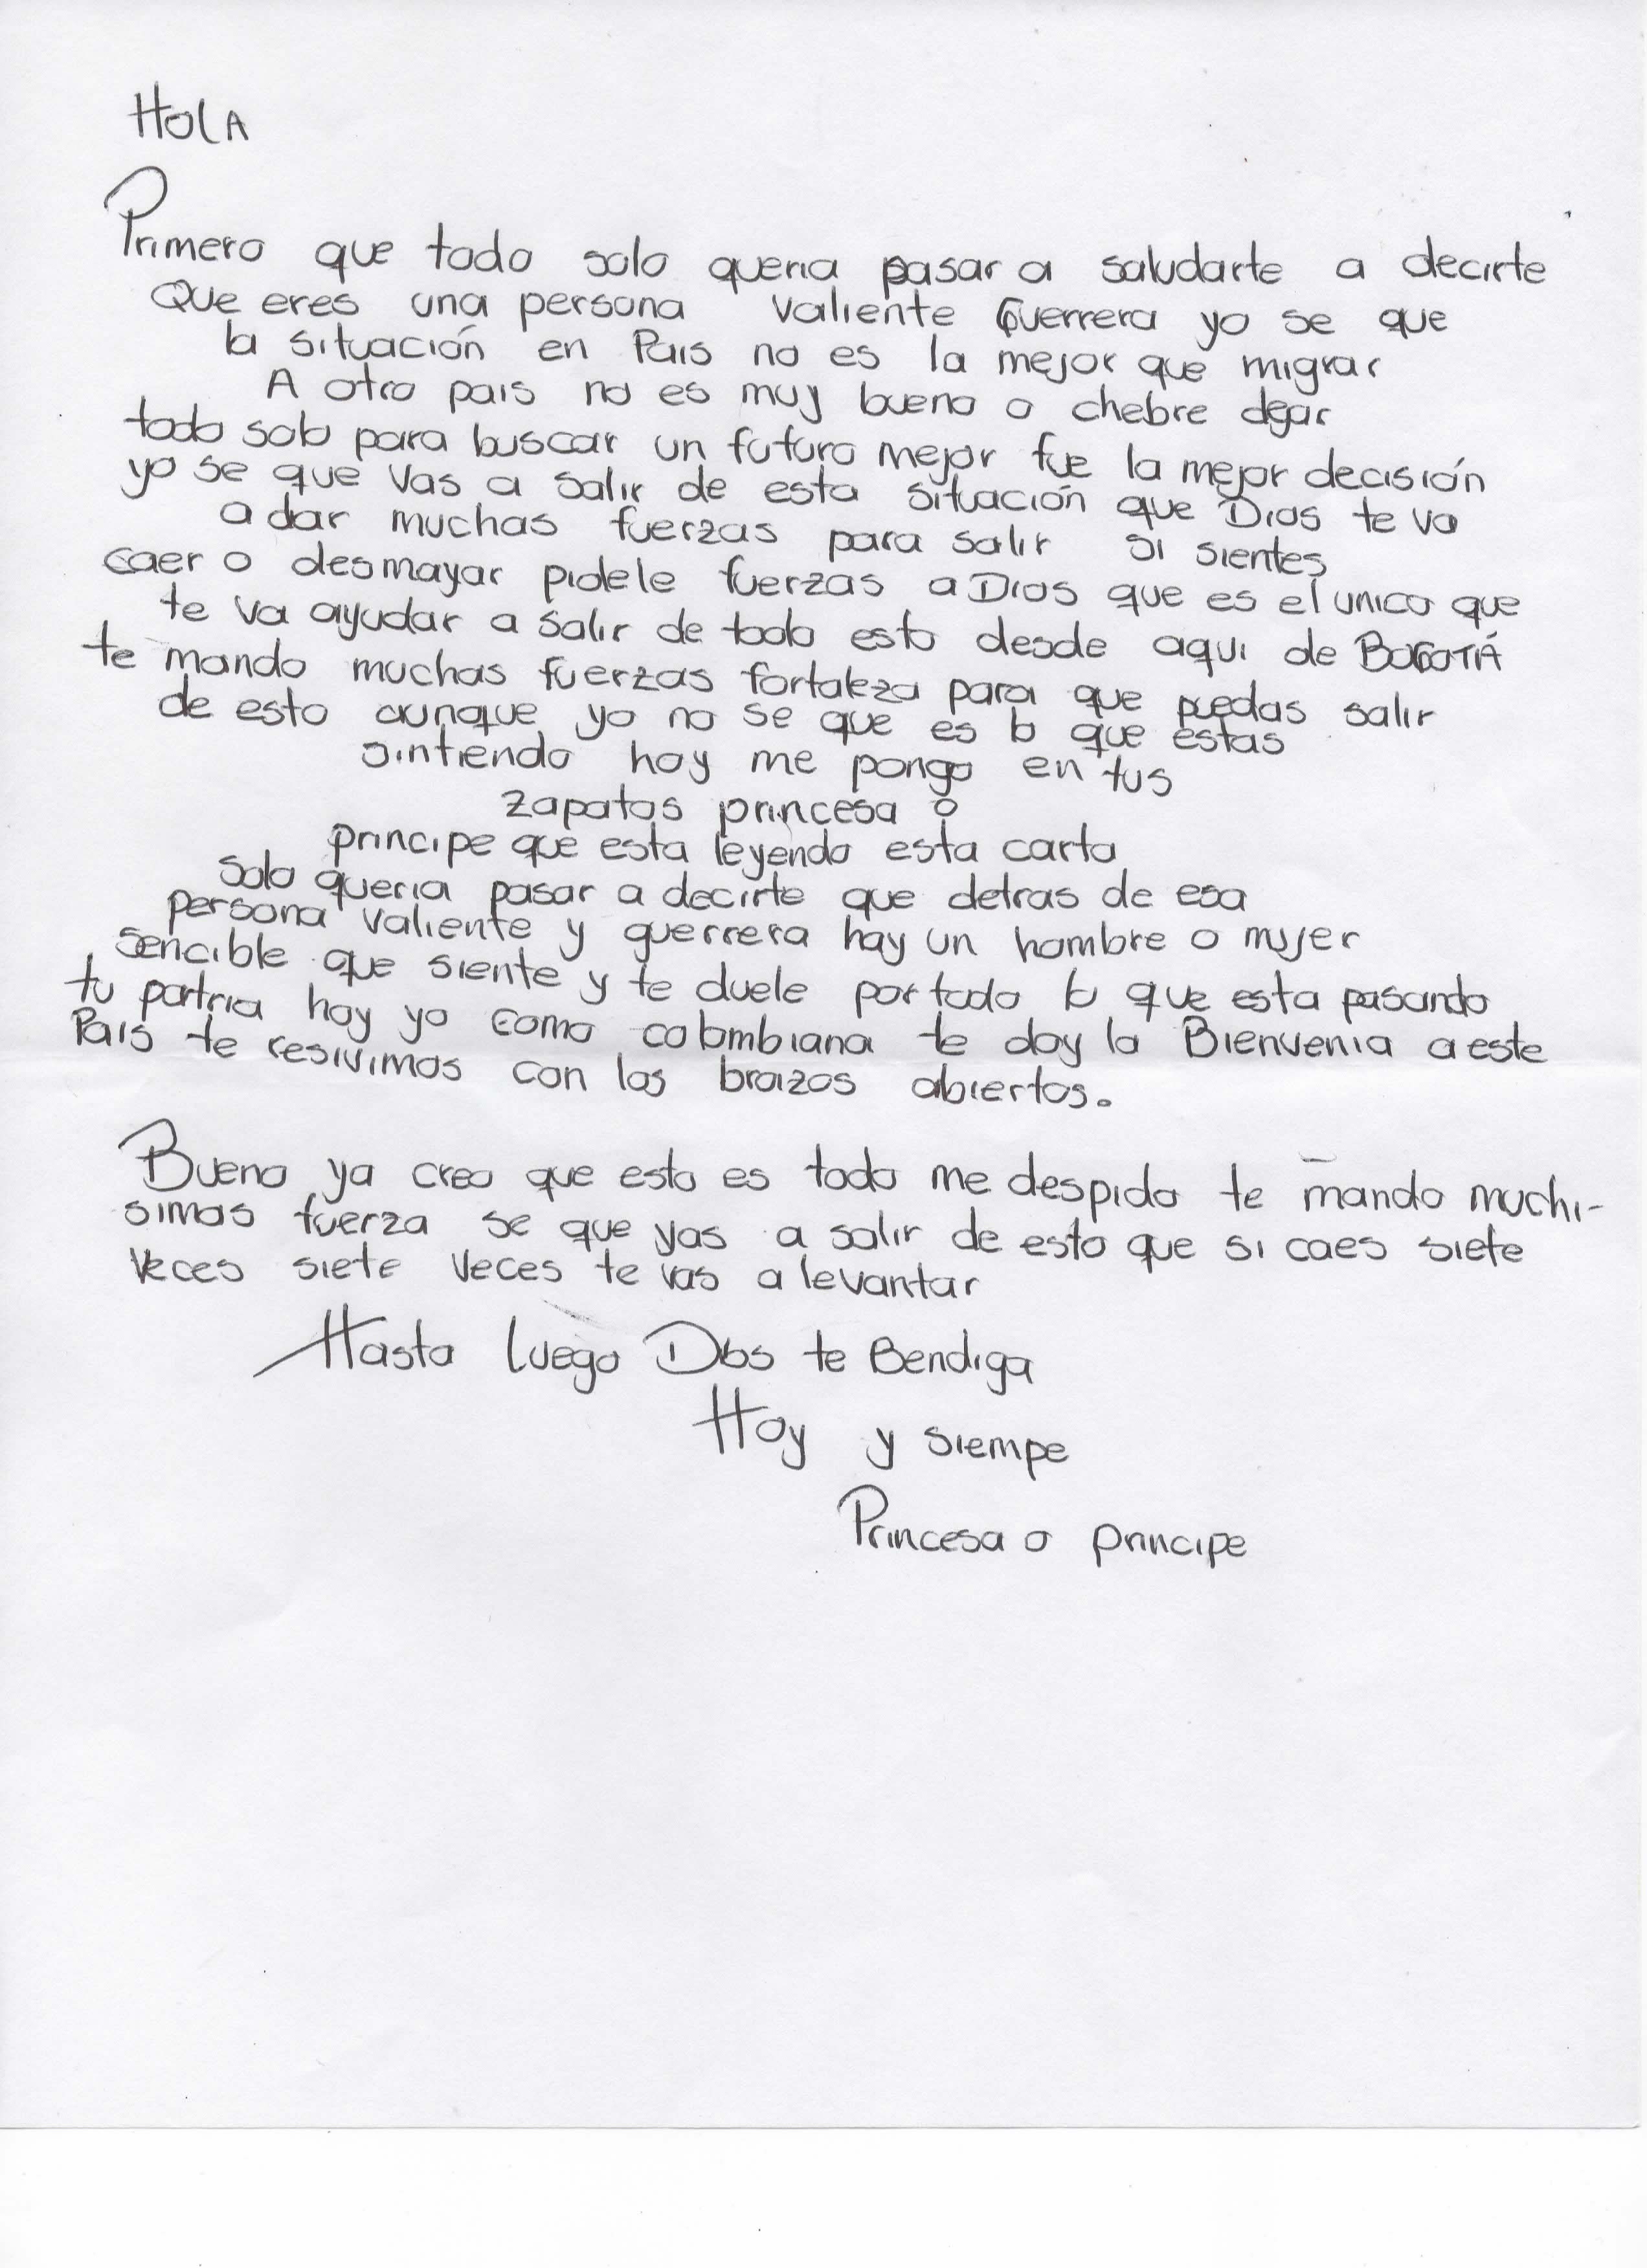 HOLA
Primero que todo solo queria pasar a saludarte a decirte
Que eres una persona valiente Guerrera yo se que
la situación en Pais no es la mejor que migrar
A otro pais no es muy bueno o chebre dejar
todo solo para buscar un futuro mejor fue la mejor decisión
yo se que vas a salir de esta situación que Dios te va
a dar muchas fuerzas para salir si sientes
caer o desmayar pidele fuerzas a Dios que es el unico que
te va ayudar a salir de todo esto desde aqui de BOGOTÁ
te mando muchas fuerzas fortaleza para que puedas salir
de esto aunque yo no se que es lo que estas
sintiendo hoy me pongo en tus
zapatos princesa o
principe que esta leyendo esta carta
Solo queria pasar a decirte que detras de esa
persona valiente y guerrera hay un hombre o mujer
sencible que siente y te duele por todo lo que esta pasando
tu patria hoy yo como colombiana te doy la Bienvenia a este
Pais te resivimos con los brazos abiertos.
Bueno ya creo que esto es todo me despido te mando muchi-
simas fuerza se que vas a salir de esto que si caes siete
veces siete veces te vas a levantar
Hasta Luego Dios te Bendiga
Hoy y siempe
Princesa o principe